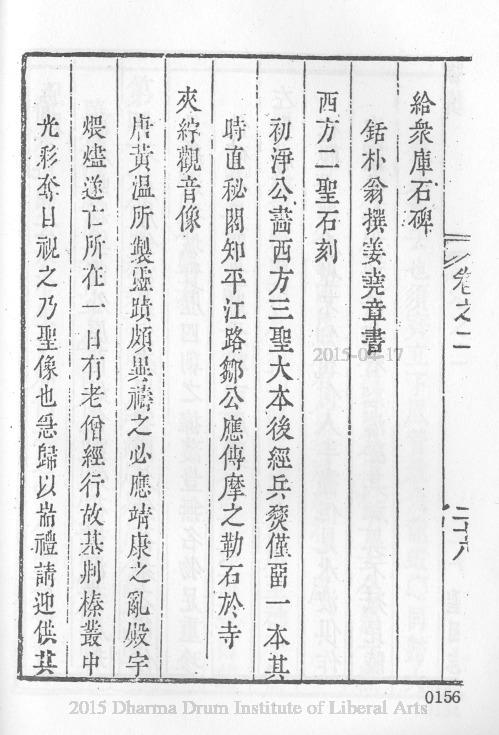 給衆庫石碑
銛朴翁撰姜堯章書
西方三聖石刻
初淨公畵西方三聖大本後經兵燹僅畱一本其
時直秘閣知平江路鄒公應傳摩之勒石於寺
夾紵觀音像
唐黃温所製靈蹟頗異禱之必應靖康之亂殿宇
煨燼遂亡所在一日有老僧經行故基荆榛叢中
光彩奪目視之乃聖像也急歸以崇禮請迎供其
卷之二
二六
0156
2015-04-17
2015 Dharma Drum Institute of Liberal Arts